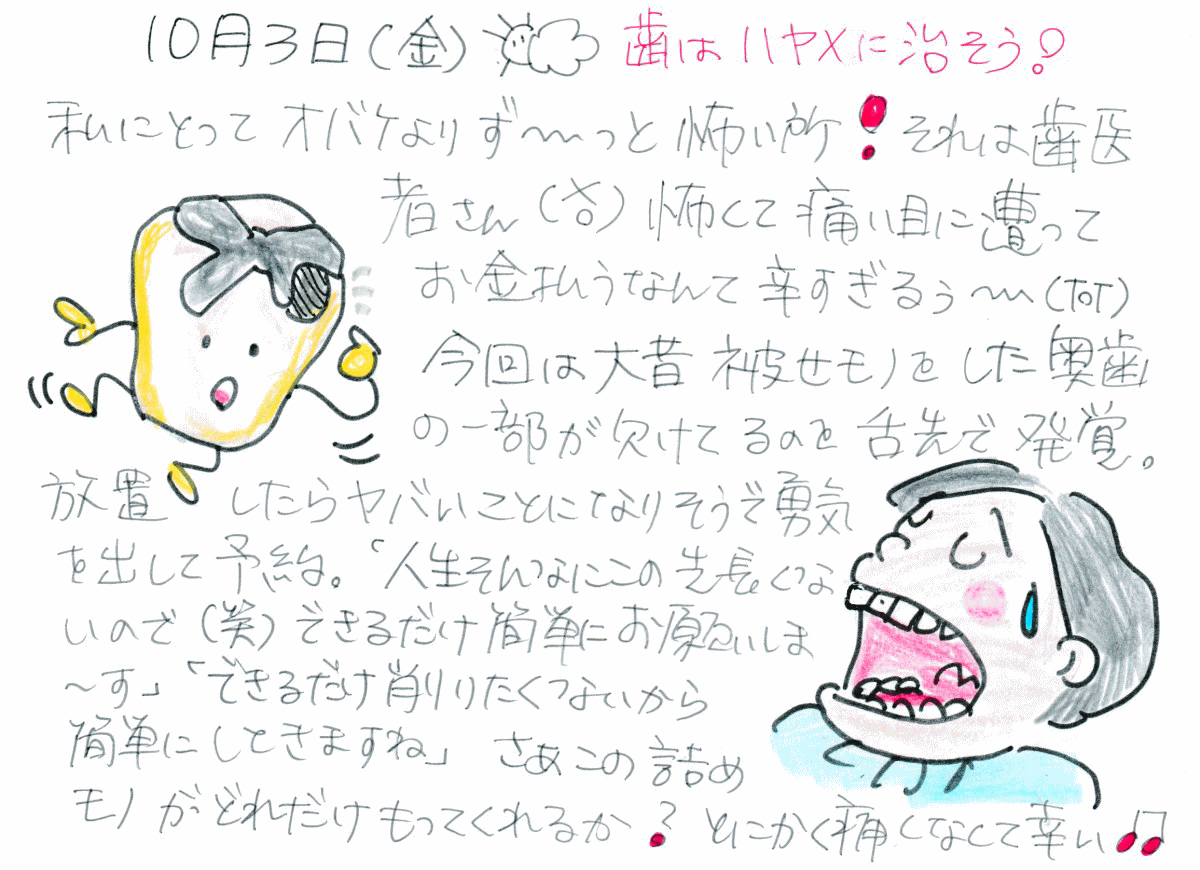 10月3日(金) 歯はハヤメに治そう!
私にとってオバケよりず〜っと怖い所!それは歯医
者さん(笑)怖くて痛い目に遭って
お金払うなんて辛すぎるぅ〜(ToT)
今回は大昔被せモノをした奥歯
の一部が欠けてるのを舌先で発覚。
放置したらヤバいことになりそうで勇気
を出して予約。「人生そんなにこの先長くな
いので(笑)できるだけ簡単にお願いしま
〜す」「できるだけ削りたくないから
簡単にしときますね」さあこの詰め
モノがどれだけもってくれるか?とにかく痛くなくて幸い♫